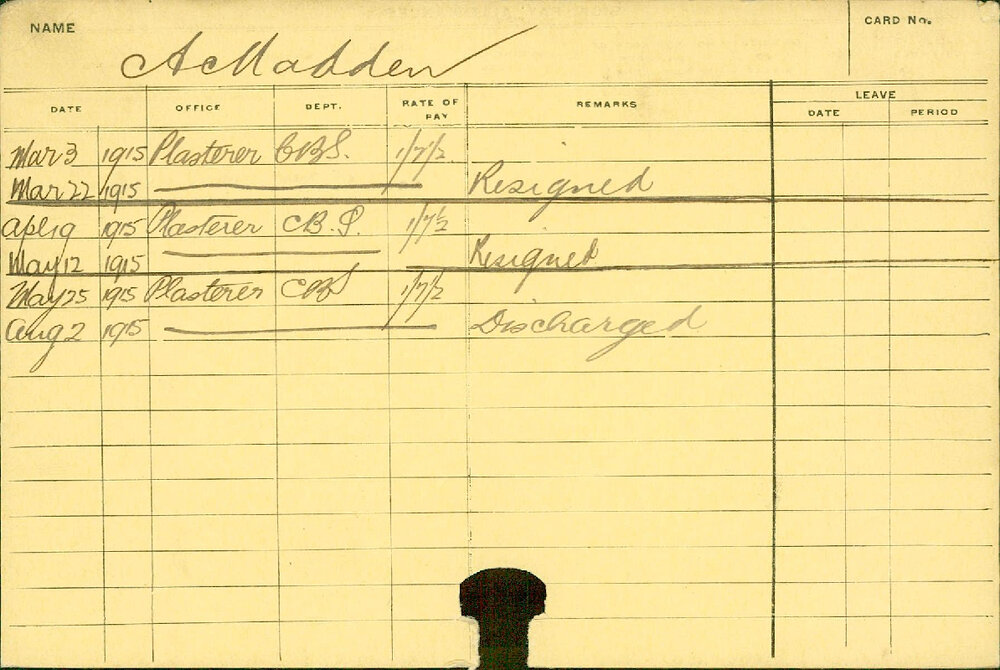 NAME
CARD No.
A Madden
DATE OFFICE DEPT. RATE OF PAY REMARKS LEAVE
DATE PERIOD
Mar 3 1915 Plasterer CBS. 1/7½
Mar 22 1915 Resigned
Apl 19 1915 Plasterer C.B.S. 1/7½
May 12 1915 Resigned
May 25 1915 Plasterer CBS 1/7½
Aug 2 1915 Discharged